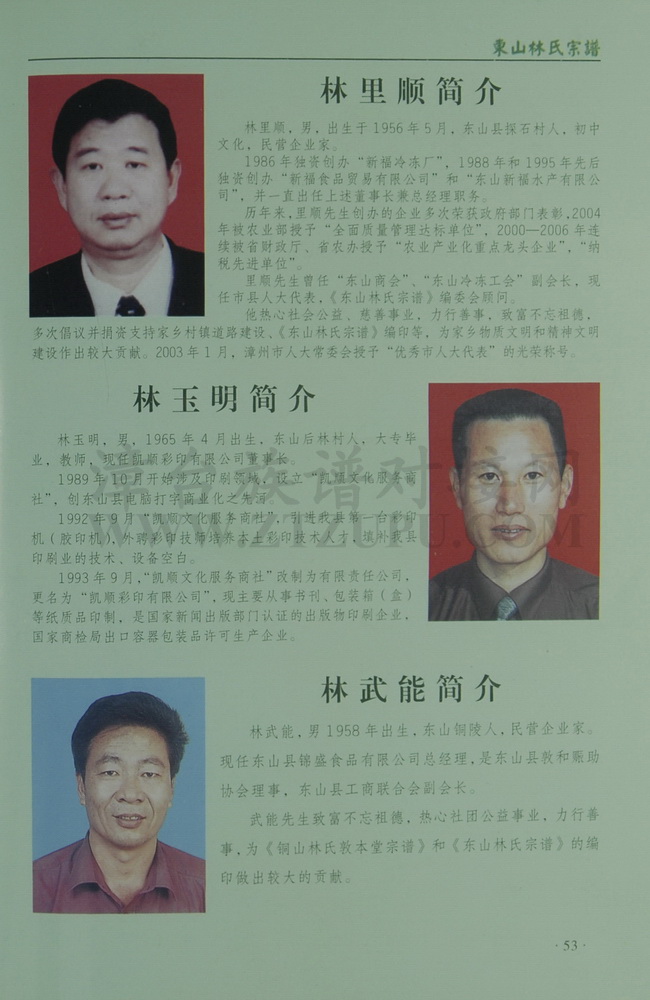 東山林氏宗譜
林里顺简介
林里顺，男，出生于1956年5月，东山县探石村人，初中
文化，民营企业家。
1986年独资创办“新福冷冻厂”，1988年和1995年先后
独资创办“新福食品贸易有限公司”和“东山新福水产有限公
司”，并一直出任上述董事长兼总经理职务。
历年来，里顺先生创办的企业多次荣获政府部门表彰，2004
年被农业部授予“全面质量管理达标单位”，2000—2006年连
续被省财政厅、省农办授予“农业产业化重点龙头企业”，“纳
税先进单位”。
里顺先生曾任“东山商会”、“东山冷冻工会”副会长，现
任市县人大代表，《东山林氏宗谱》编委会顾问。
他热心社会公益、慈善事业，力行善事，致富不忘祖德，
多次倡议并捐资支持家乡村镇道路建设、《东山林氏宗谱》编印等，为家乡物质文明和精神文明
建设作出较大贡献。2003年1月，漳州市人大常委会授予“优秀市人大代表”的光荣称号。
林玉明简介
林玉明，男，1965年4月出生，东山后林村人，大专毕
业，教师，现任凯顺彩印有限公司董事长。
1989年10月开始涉及印刷领域，设立“凯顺文化服务商
社”，创东山县电脑打字商业化之先河。
1992年8月“凯顺文化服务商社”，引进我县第一台彩印
机（胶印机），外聘彩印技师培养本土彩印技术人才，填补我县
印刷业的技术、设备空白。
1993年9月，“凯顺文化服务商社”改制为有限责任公司，
更名为“凯顺彩印有限公司”，现主要从事书刊、包装箱（盒）
等纸质品印制，是国家新闻出版部门认证的出版物印刷企业，
国家商检局出口容器包装品许可生产企业。
林武能简介
林武能，男1958年出生，东山铜陵人，民营企业家。
现任东山县锦盛食品有限公司总经理，是东山县敦和赈助
协会理事，东山县工商联合会副会长。
武能先生致富不忘祖德，热心社团公益事业，力行善
事，为《铜山林氏敦本堂宗谱》和《东山林氏宗谱》的编
印做出较大的贡献。
·53·
WWW.ZTZUPU.COM